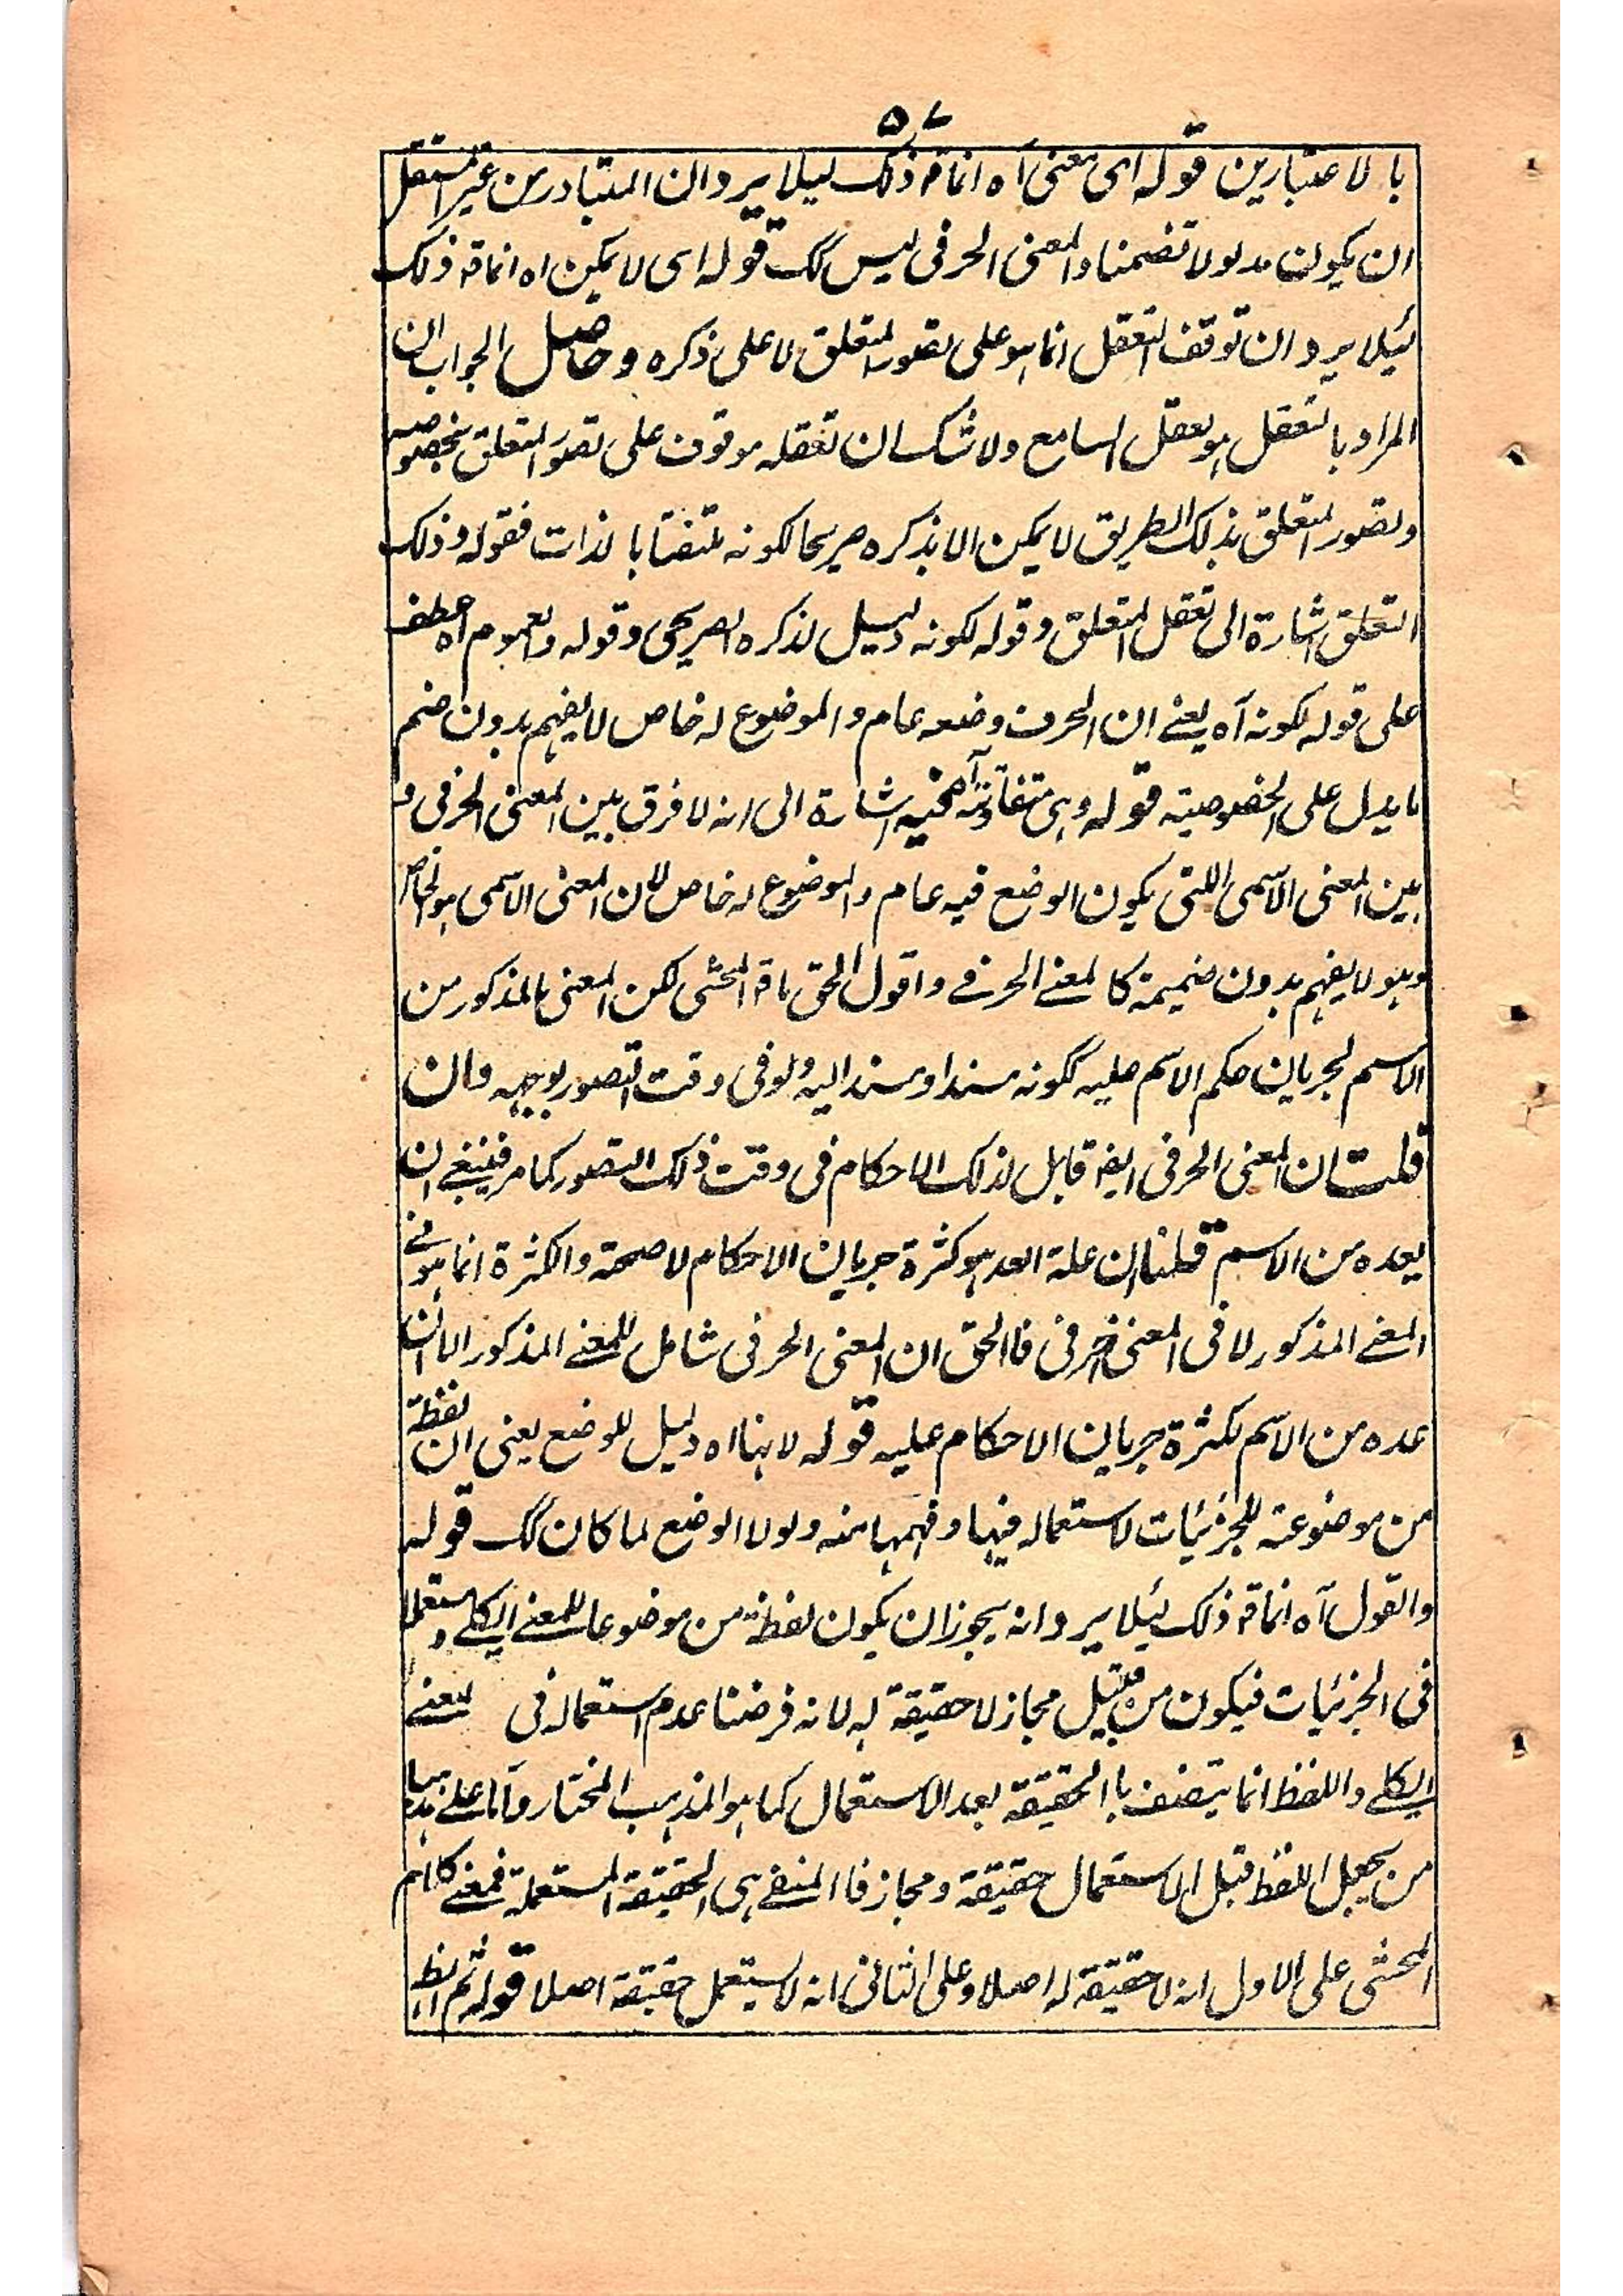 ۵۷
بالاعتبارین قوله ای معنی آه انما قم ذلک لیلا یرد ان المتبادر من غیر المستقل
ان یکون مدلولا تضمنا والمعنی الحرفی لیس کک قوله ای لا یمکن اه انما قم ذلک
لئیلا یرد ان توقف التعقل انما هو علی تصور المتعلق لا علی ذکره وحاصل الجواب ان
المراد بالتعقل هو تعقل السامع ولا شک ان تعقله موقوف علی تصور المتعلق بخصوصه
وتصور المتعلق بذلک الطریق لا یمکن الا بذکره صریحا لکونه ملتفتا بالذات فقوله وذلک
التعلق اشارة الی تعقل المتعلق وقوله لکونه دلیل لذکره الصریحی وقوله والعموم اه عطف
علی قوله لکونه آه یعنے ان الحرف وضعه عام والموضوع له خاص لا یفهم بدون ضم
ما یدل علی الخصوصیته قوله وهی متفاوتة آه فیه اشارة الی انه لا فرق بین المعنی الحرفی و
بین المعنی الاسمی اللتی یکون الوضع فیه عام والموضوع له خاص لان المعنی الاسمی هو الخاص
وهو لا یفهم بدون ضمیمة کالمعنے الحرفے واقول الحق ما قم المحشی لکن المعنی المذکور من
الاسم لجریان حکم الاسم علیه ککونه مسندا ومسندا الیه ولو فی وقت التصور بوجهه وان
قلت ان المعنی الحرفی ایضا قابل لذلک الاحکام فی وقت ذلک التصور کما مر فینبغے ان
یعده من الاسم قلنا ان علة العد هو کثرة جریان الاحکام لا صحته والکثرة انما هو فے
المعنے المذکور لا فی المعنی الحرفی فاالحق ان المعنی الحرفی شامل للمعنے المذکور الا ان
عده من الاسم لکثرة جریان الاحکام علیه قوله لا بناا اه دلیل للوضع یعنی ان لفظة
من موضوعته للجزئیات لاستعماله فیها وفهمها منه ولولا الوضع لما کان کک قوله
والقول آه انما قم ذلک لیئلا یرد انه یجوز ان یکون لفظة من موضوعا للمعنے الکلے ومستعملا
فی الجزئیات فیکون من قبیل مجاز لا حقیقة له لانه فرضنا عدم استعماله فی المعنے
الکلے واللفظ انما یتصف باالحقیقة بعد الاستعمال کما هو المذهب المختار واما علے مذهب
من یجعل اللفظ قبل الاستعمال حقیقة ومجاز فاالمنفے هی الحقیقة المستعملة فمعنے کلام
المحشی علی الاول انه لا حقیقة له اصلا وعلی الثانی انه لا یستعمل حقیقة اصلا قوله ثم الظ